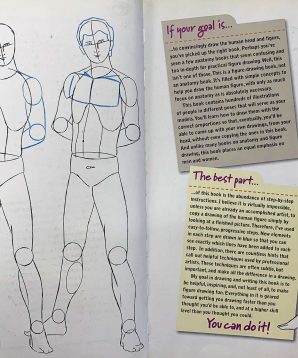 If your goal is...
...to convincingly draw the human head and figure,
you've picked up the right book. Perhaps you've
seen a few anatomy books that seem confusing and
too in-depth for practical figure drawing. Well, this
isn't one of those. This is a figure drawing book, not
an anatomy book. It's filled with simple concepts to
help you draw the human figure, with only as much
focus on anatomy as is absolutely necessary.
This book contains hundreds of illustrations
of people in different poses that will serve as your
models. You'll learn how to draw them with the
correct proportions so that, eventually, you'll be
able to come up with your own drawings, from your
head, without even copying the ones in this book.
And unlike many books on anatomy and figure
drawing, this book places an equal emphasis on
men and women.
The best part...
...of this book is the abundance of step-by-step
instructions. I believe it is virtually impossible,
unless you are already an accomplished artist, to
copy a drawing of the human figure simply by
looking at a finished picture. Therefore, I've used
easy-to-follow, progressive steps. New elements
in each step are drawn in blue so that you can
see exactly which lines have been added to each
step. In addition, there are countless hints that
call out helpful techniques used by professional
artists. These techniques are often subtle, but
important, and make all the difference in a drawing.
My goal in drawing and writing this book is to
be helpful, inspiring, and, not least of all, to make
figure drawing fun. Everything in it is geared
toward getting you drawing faster than you
thought you'd be able to, and at a higher skill
level than you thought you could.
You can do it!